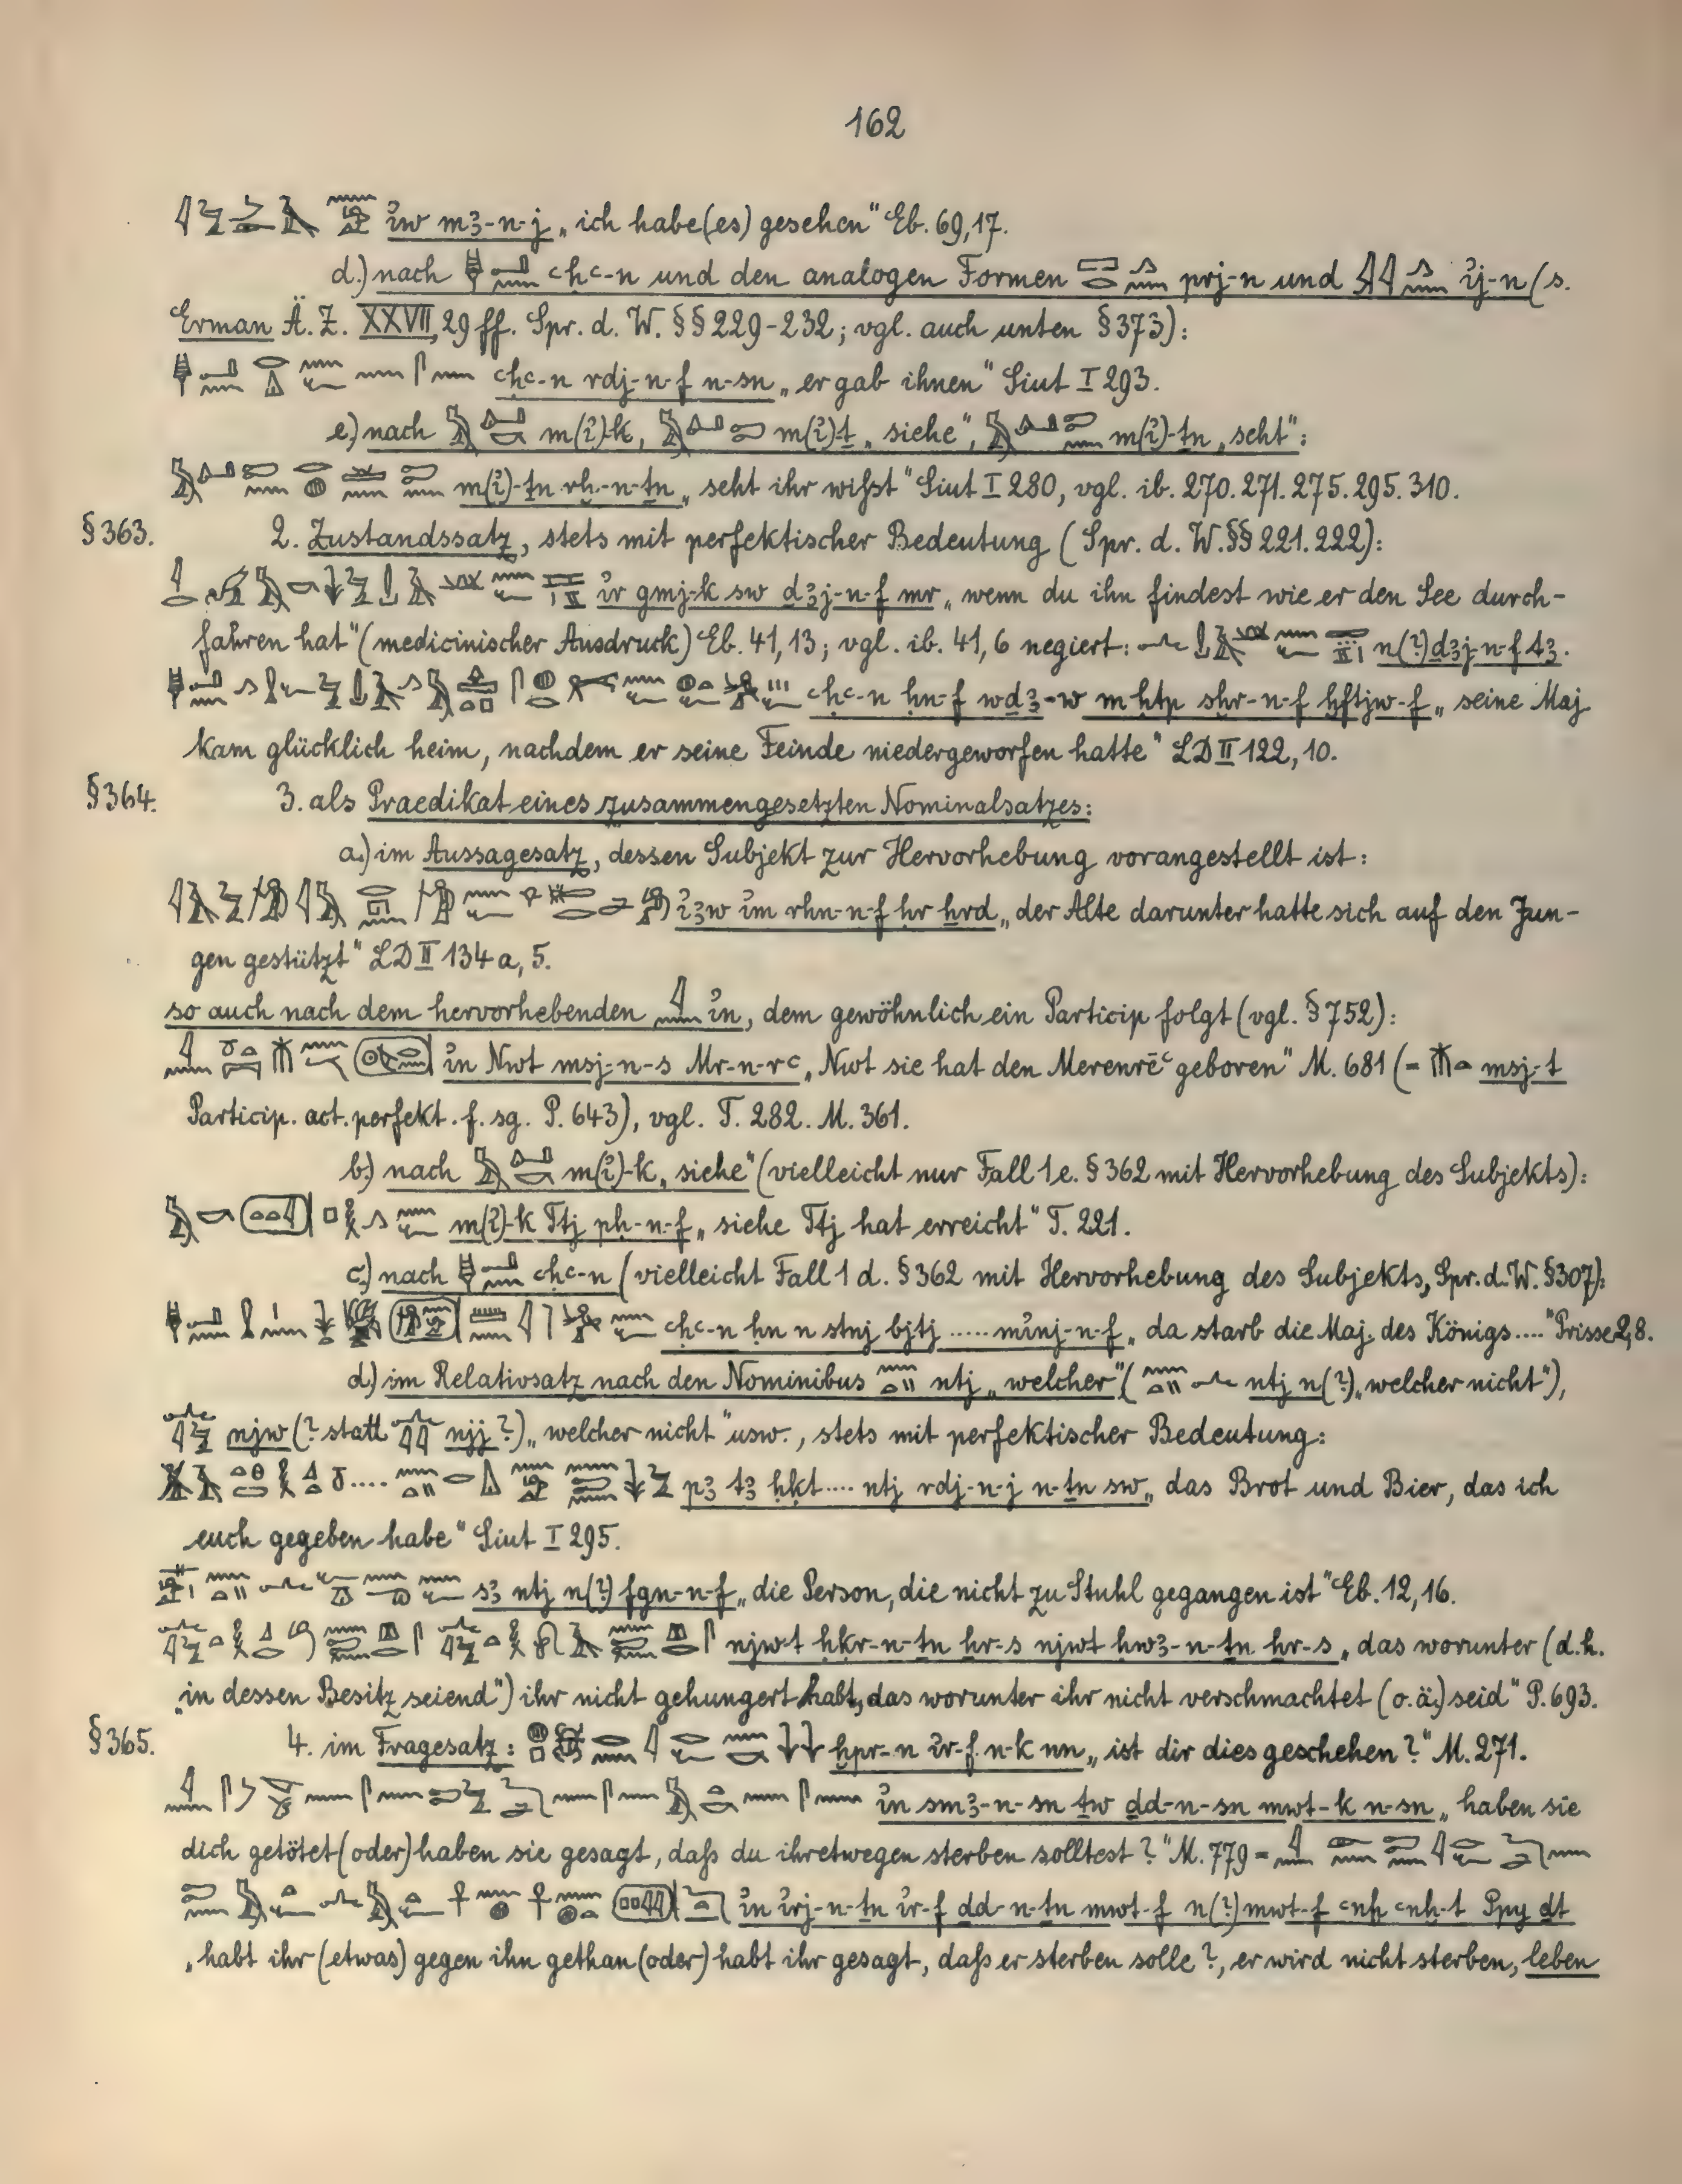 162
i̓w m3-n-j „ich habe (es) gesehen“ Eb. 69,17.
d.) nach ꜥḥꜥ-n und den analogen Formen prj-n und i̓j-n (s.
Erman Ä. Z. XXVII, 29 ff. Spr. d. W. §§ 229-232; vgl. auch unten § 373):
ꜥḥꜥ-n rdj-n-f n-sn „er gab ihnen“ Siut I 293.
e) nach m(i̓)-k, m(i̓)ṯ „siehe“, m(i̓)-ṯn „seht“:
m(i̓)-ṯn rḫ-n-ṯn „seht ihr wißt“ Siut I 280, vgl. ib. 270. 271. 275. 295. 310.
§ 363. 2. Zustandssatz, stets mit perfektischer Bedeutung (Spr. d. W. §§ 221. 222):
i̓r gmj-k sw ḏ3j-n-f mr „wenn du ihn findest wie er den See durch-
fahren hat“ (medicinischer Ausdruck) Eb. 41,13; vgl. ib. 41,6 negiert: n(?) ḏ3j-n-f t3.
ꜥḥꜥ-n ḥn-f wḏ3-w m ḥtp sḫr-n-f ḫftjw-f „seine Maj
kam glücklich heim, nachdem er seine Feinde niedergeworfen hatte“ LD II 122, 10.
§ 364. 3. als Praedikat eines zusammengesetzten Nominalsatzes:
a.) im Aussagesatz, dessen Subjekt zur Hervorhebung vorangestellt ist:
i̓3w i̓m rhn-n-f ḥr ẖrd „der Alte darunter hatte sich auf den Jun-
gen gestützt“ LD II 134 a, 5.
so auch nach dem hervorhebenden i̓n, dem gewöhnlich ein Particip folgt (vgl. § 752):
i̓n Nwt msj-n-s Mr-n-rꜥ „Nwt sie hat den Merenrēꜥ geboren“ M. 681 (= msj-t
Particip. act. perfekt. f. sg. P. 643), vgl. T. 282. M. 361.
b.) nach m(i̓)-k „siehe“ (vielleicht nur Fall 1e. § 362 mit Hervorhebung des Subjekts):
m(i̓)-k Ttj pḥ-n-f „siehe Ttj hat erreicht“ T. 221.
c.) nach ꜥḥꜥ-n (vielleicht Fall 1 d. § 362 mit Hervorhebung des Subjekts, Spr. d. W. § 307):
ꜥḥꜥ-n ḥn n stnj bjtj ...... mi̓nj-n-f „da starb die Maj. des Königs ....“ Prisse 2,8.
d.) im Relativsatz nach den Nominibus ntj „welcher“ (ntj n(?) „welcher nicht“),
njw (? statt njj ?) „welcher nicht“ usw., stets mit perfektischer Bedeutung:
p3 t3 ḥḳt .... ntj rdj-n-j n-ṯn sw „das Brot und Bier, das ich
euch gegeben habe“ Siut I 295.
s3 ntj n(?) fgn-n-f „die Person, die nicht zu Stuhl gegangen ist“ Eb. 12, 16.
njw-t ḥḳr-n-ṯn ẖr-s njwt ḥw3-n-ṯn ẖr-s „das worunter (d.h.
„in dessen Besitz seiend“) ihr nicht gehungert habt, das worunter ihr nicht verschmachtet (o. ä.) seid“ P. 693.
§ 365. 4. im Fragesatz: ḫpr-n i̓r-f n-k nn „ist dir dies geschehen?“ M. 271.
i̓n sm3-n-sn ṯw ḏd-n-sn mwt-k n-sn „haben sie
dich getötet (oder) haben sie gesagt, daß du ihretwegen sterben solltest?“ M. 779 =
i̓n i̓rj-n-ṯn i̓r-f ḏd-n-ṯn mwt-f n(?) mwt-f ꜥnḫ ꜥnḫ-t Ppy ḏt
„habt ihr (etwas) gegen ihn gethan (oder) habt ihr gesagt, daß er sterben solle?, er wird nicht sterben, leben